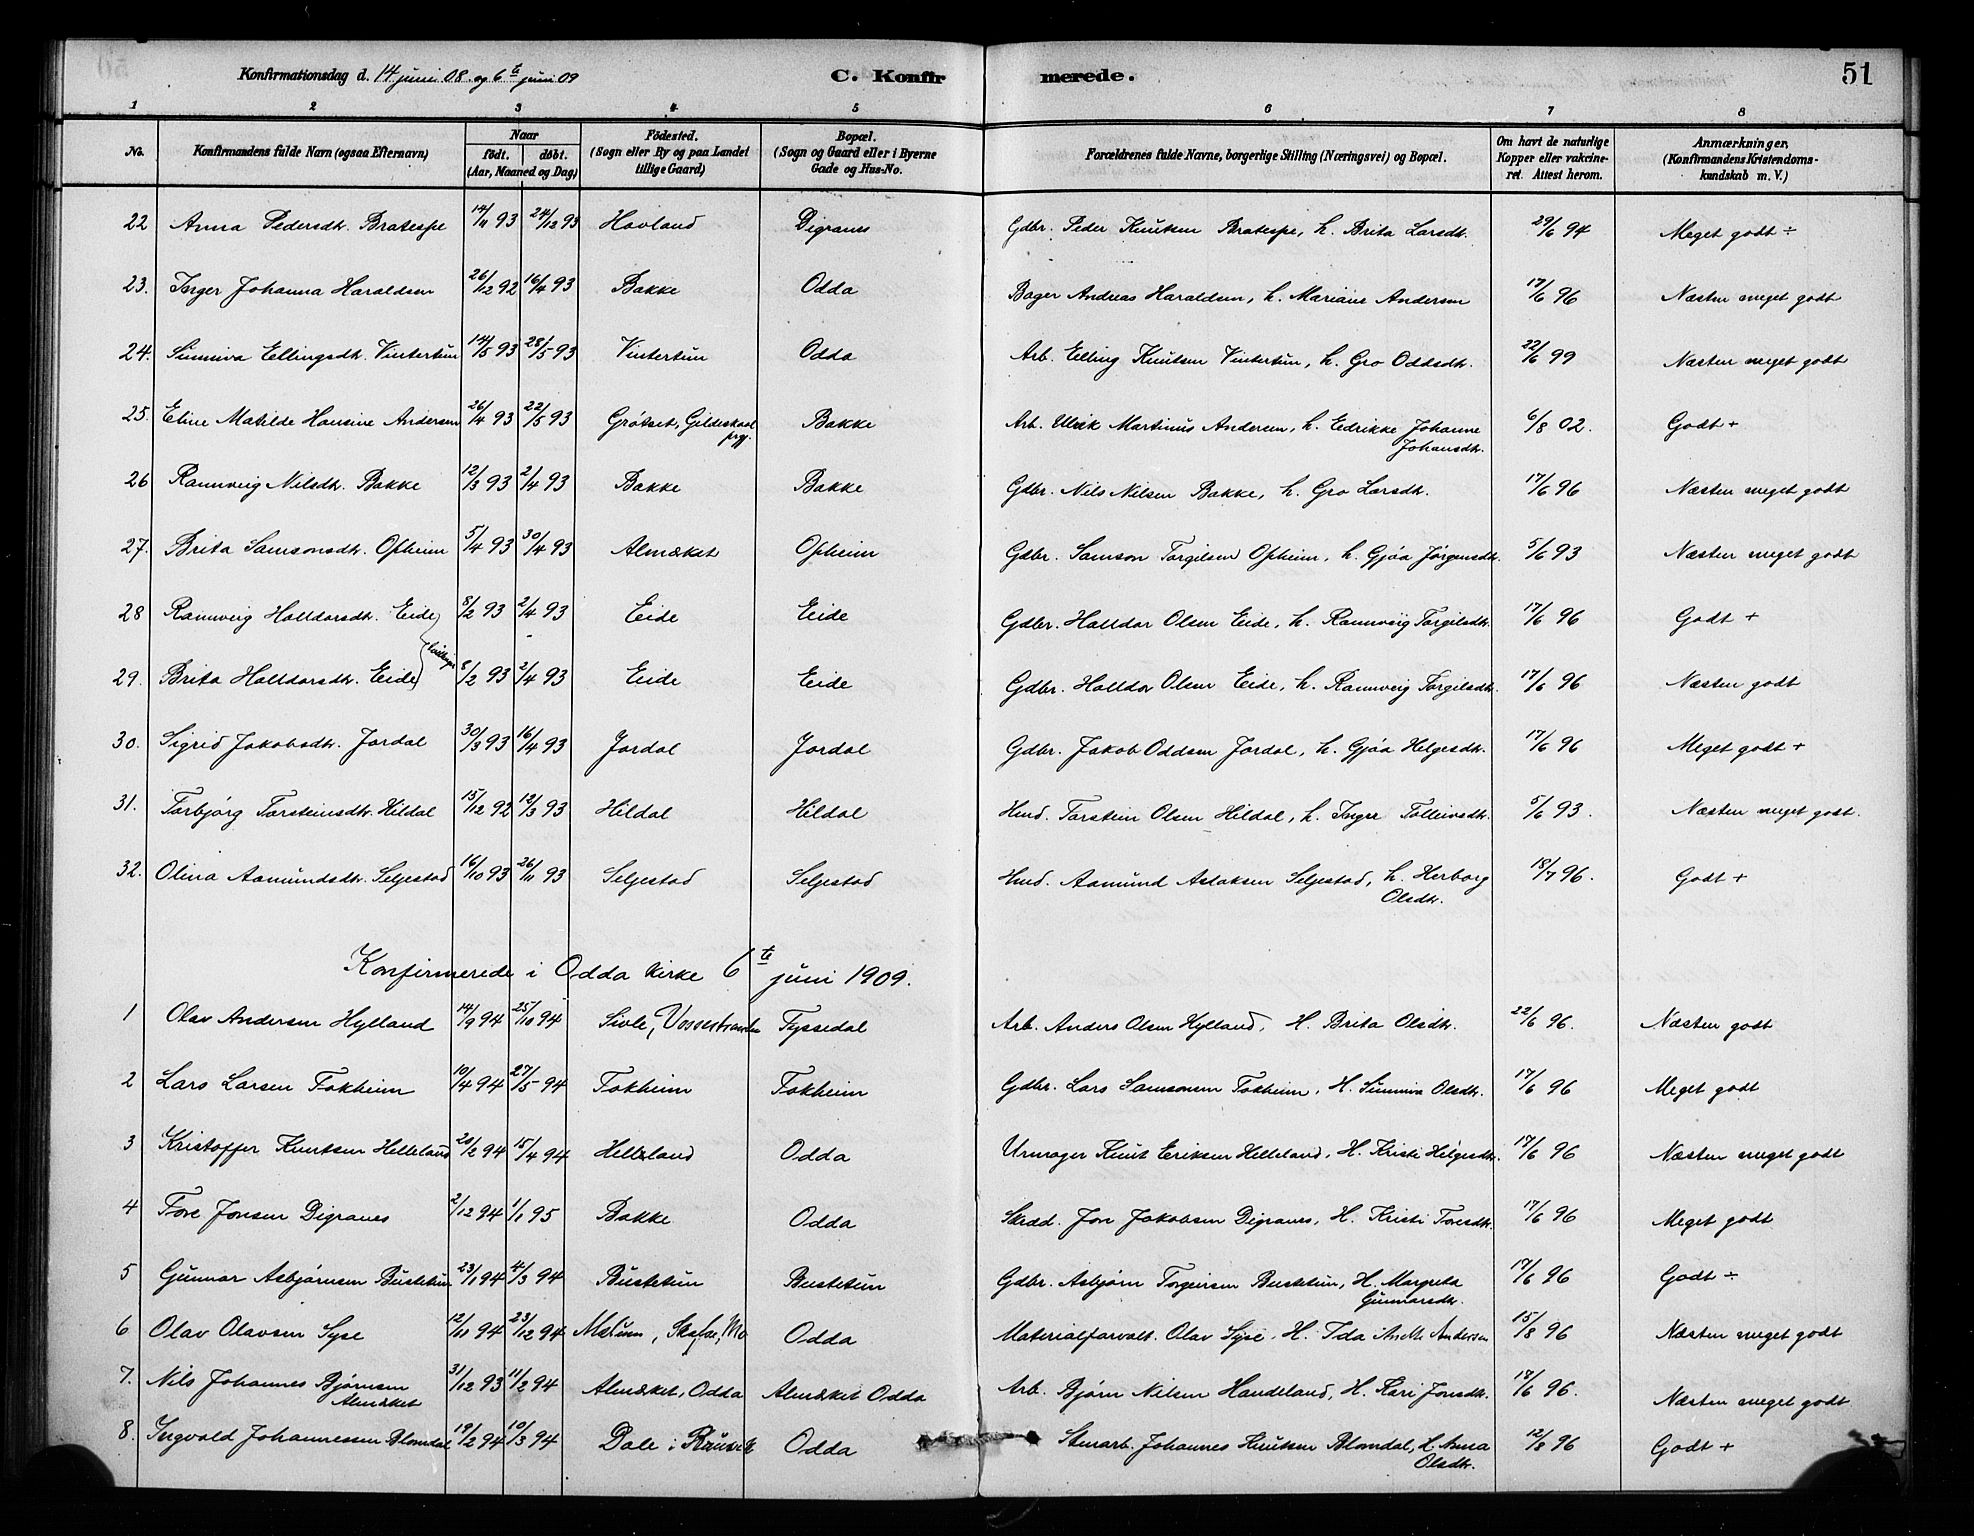 Konfirmationsdag d. 14 juni 08 og 6te juni 09 C. Konfirmerede. 51
1 2 3 4 5 6 7 8
No. Konfirmandens fulde Navn (ogsaa Efternavn) Naar födt. döbt. (Aar, Maaned og Dag) Födested. (Sogn eller By og paa Landet tillige Gaard) Bopæl. (Sogn og Gaard eller i Byerne Gade og Hus-No. Forældrenes fulde Navne, borgerlige Stilling (Næringsvei) og Bopæl. Om havt de naturlige Kopper eller vakcineret. Attest herom. Anmærkninger, (Konfirmandens Kristendomskundskab m. V.)
22 Anna Pedersdtr. Bratespe 14/11 93 24/12 93 Hovland Digranes Gdbr. Peder Knutsen Bratespe, h. Brita Larsdtr. 29/6 94 Meget godt ÷
23. Inger Johanna Haraldsen 26/12 92 16/4 93 Bakke Odda Bager Andreas Haraldsen, h. Mariane Andersen 17/6 96 Næsten meget godt
24. Sunniva Ellingsdtr. Vintertun 14/5 93 28/5 93 Vintertun Odda Arb. Elling Knutsen Vintertun, h. Gro Oddsdtr. 22/6 99 Næsten meget godt
25. Eline Matilde Hansine Andersen 26/4 93 22/5 93 Grötset, Gildeskaal prg. Bakke Arb. Ulrik Martinus Andersen, h. Edrikke Johanne Johansdtr. 6/8 02. Godt +
26 Rannveig Nilsdtr. Bakke 12/3 93 2/4 93 Bakke Bakke Gdbr. Nils Nilsen Bakke, h. Gro Larsdtr. 17/6 96 Næsten meget godt
27. Brita Samsonsdtr. Opheim 5/4 93 30/4 93 Almerket Opheim Gdbr. Samson Torgilsen Opheim, h. Gjöa Jörgensdtr. 5/6 93 Næsten meget godt
28 Rannveig Halldorsdtr. Eide 8/2 93 2/4 93 Eide Eide Gdbr. Halldor Olsen Eide, h. Rannveig Torgilsdtr. 17/6 96 Godt +
tvillinger
29. Brita Halldorsdtr. Eide 8/2 93 2/4 93 Eide Eide Gdbr. Halldor Olsen Eide, h. Rannveig Torgilsdtr. 17/6 96 Næsten godt
30. Sigrid Jakobsdtr. Jordal 30/3 93 16/4 93 Jordal Jordal Gdbr. Jakob Oddsen Jordal, h. Gjöa Helgesdtr. 17/6 96 Meget godt +
31. Torbjörg Torsteinsdtr. Hildal 15/12 92 12/3 93 Hildal Hildal Hmd. Torstein Olsen Hildal, h. Inger Tolleivsdtr. 5/6 93. Næsten meget godt.
32. Olina Aamundsdtr. Seljestad 16/10 93 26/11 93 Seljestad Seljestad Hmd. Aamund Aslaksen Seljestad, h. Herborg Olsdtr. 18/7 96. Godt +
Konfirmerede i Odda kirke 6te juni 1909.
1 Olav Andersen Hylland 14/9 94 25/10 94 Sivle, Vossestranden Tyssedal Arb. Anders Olsen Hylland, H. Brita Olsdtr. 22/6 96. Næsten godt
2 Lars Larsen Tokheim 10/4 94 27/5 94 Tokheim Tokheim Gdbr. Lars Samsonsen Tokheim, H. Sunniva Olsdtr. 17/6 96 Meget godt
3 Kristoffer Knutsen Helleland 20/2 94 15/4 94 Helleland Odda Urmager Knut Eriksen Helleland, H. Kristi Helgesdtr. 17/6 96 Næsten meget godt
4 Tore Jonsen Digranes 2/12 94 1/1 95 Bakke Odda Skræd. Jon Jakobsen Digranes, H. Kristi Toresdtr. 17/6 96 Meget godt
5 Gunnar Asbjörnsen Bustetun 23/1 94 4/3 94 Bustetun Bustetun Gdbr. Asbjörn Torgeirsen Bustetun, H. Margreta Gunnarsdtr. 17/6 96 Godt ÷
6 Olav Olavsen Syse 12/11 94 23/12 94 Odda Materialforvalt. Olav Syse, H. Ida Andersen 15/8 96 Næsten meget godt
7. Nils Johannes Björnsen Almerket 31/12 93 11/2 94 Almerket, Odda Almerket Odda Arb. Björn Nilsen Handeland, H. Kari Jonsdtr. 17/6 96. Næsten meget godt
8. Ingvald Johannessen Blomdal 19/2 94 10/3 94 Dale i Odda Stenarb. Johannes Knutsen Blomdal, h. Anna Olsdtr. 12/8 96 Godt +